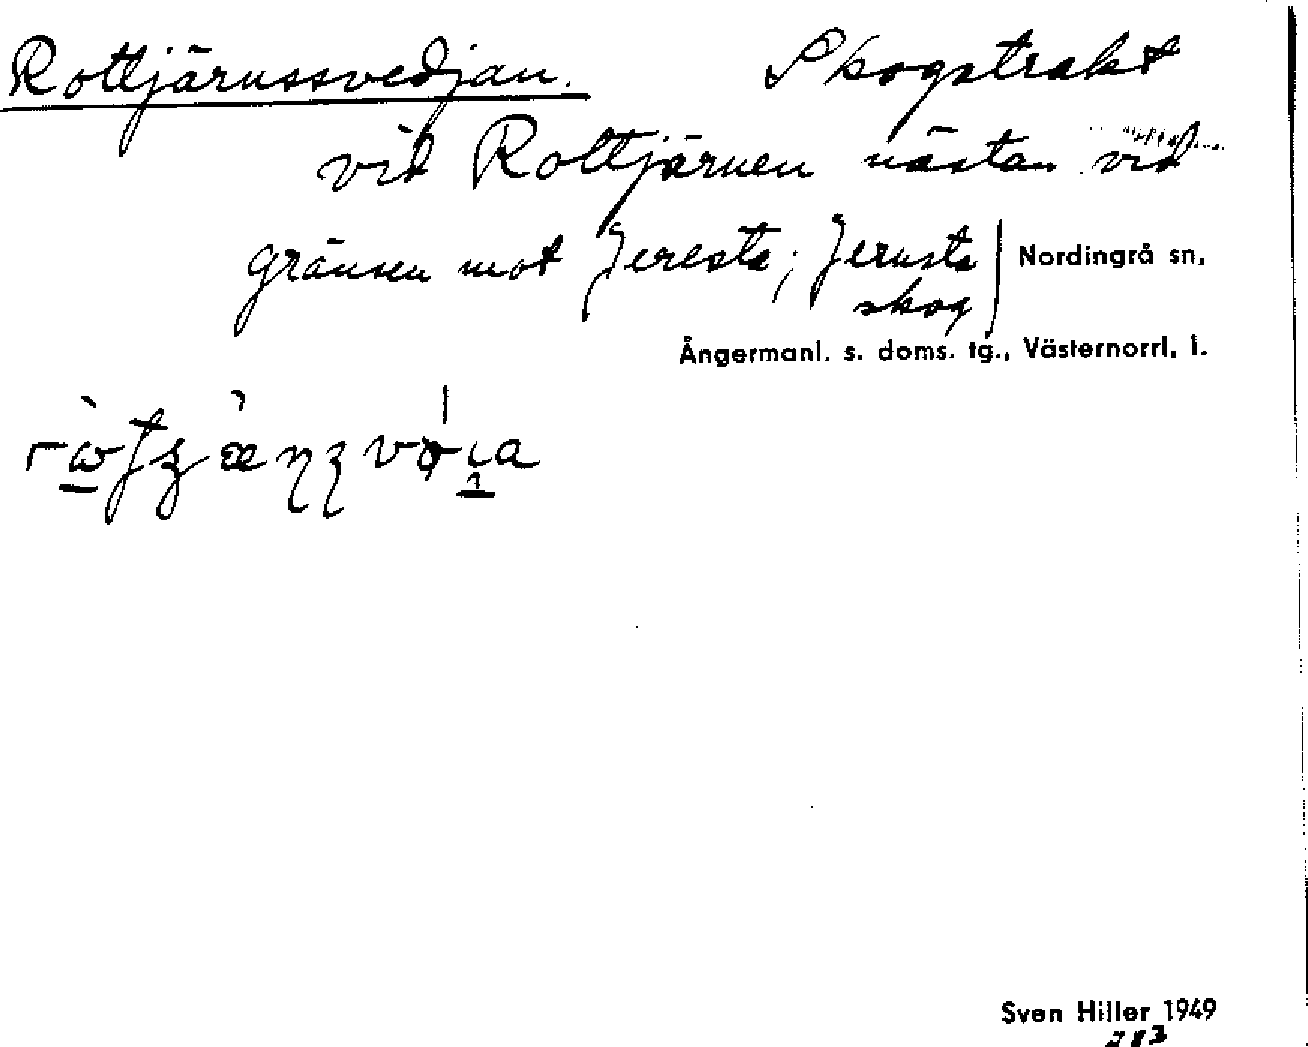 Rottjärnssvedjan. Skogstrakt
vid Rottjärnen nästan vid
gränsen mot Jeresta; Jerusta Nordingrå sn,
skog
Ångermanl. s. doms. tg., Västernorrl. l.
Sven Hiller 1949